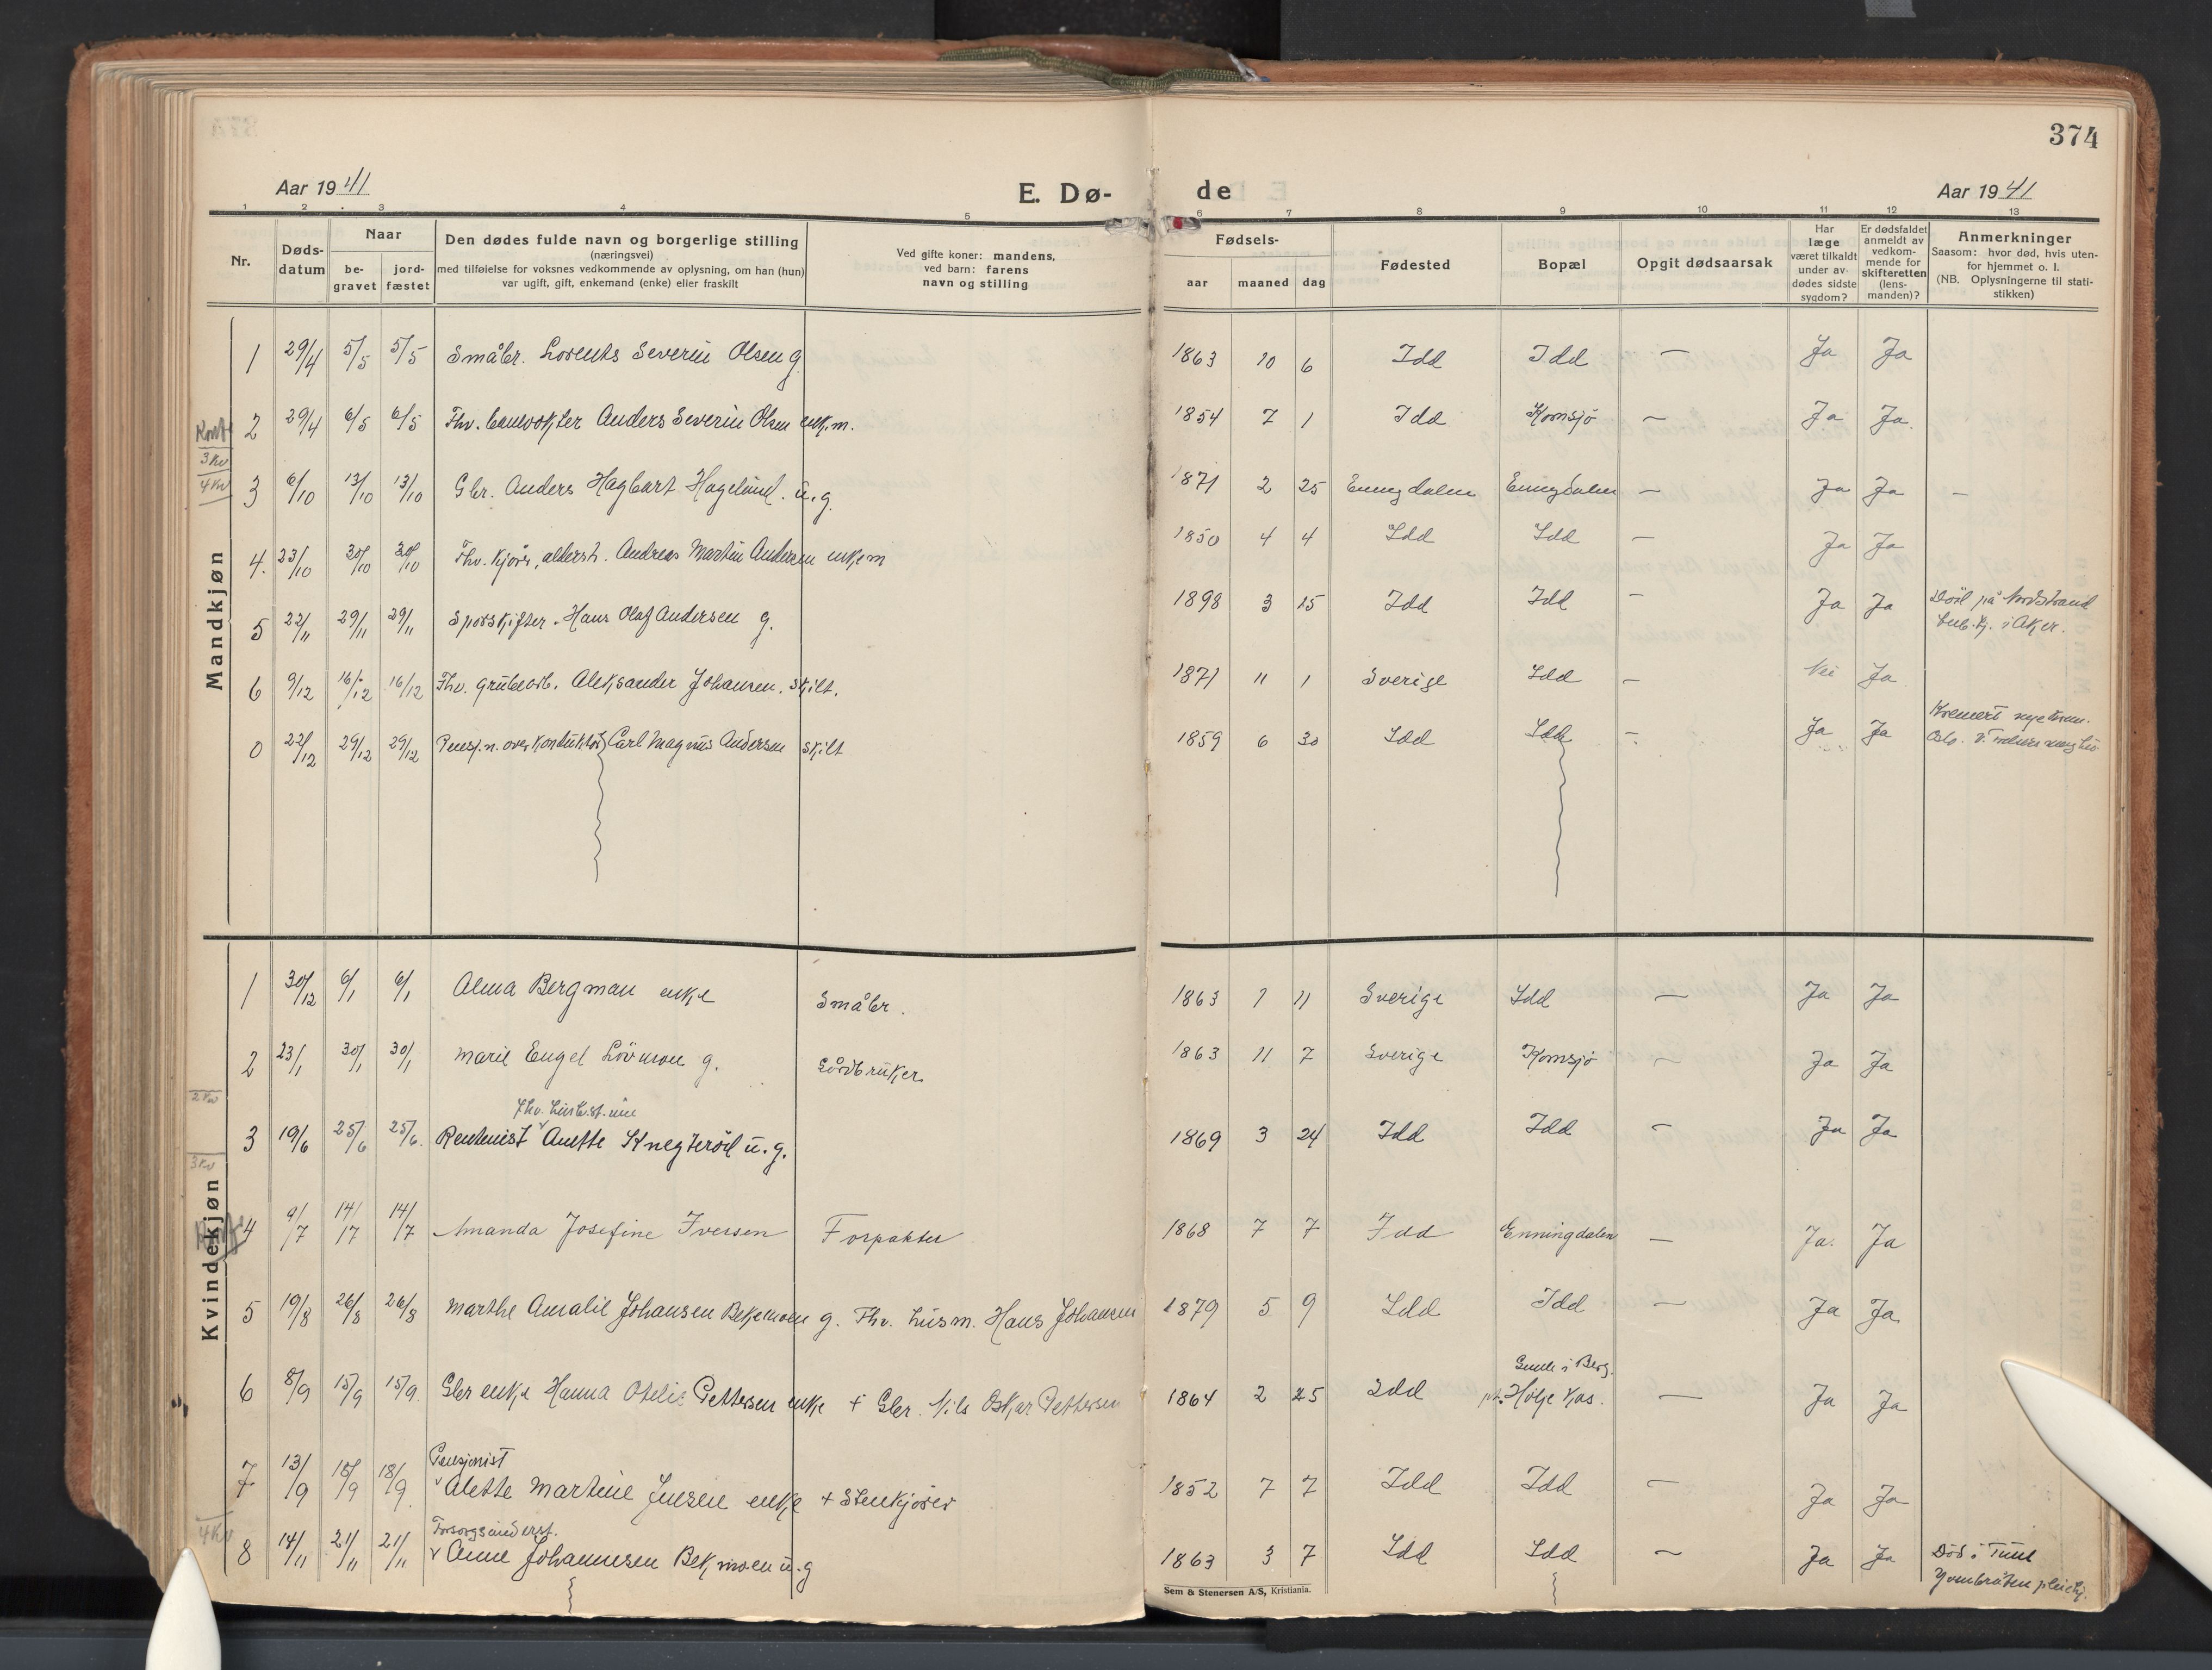 374
Aar 1941
E. Dø-
de
Aar 1941
1 2 3 4 5 6 7 8 9 10 11 12 13
Nr.
Døds-
datum
Naar
be-
gravet
jord-
fæstet
Den dødes fulde navn og borgerlige stilling
(næringsvei)
med tilføielse for voksnes vedkommende av oplysning, om han (hun)
var ugift, gift, enkemand (enke) eller fraskilt
Ved gifte koner: mandens,
ved barn: farens
navn og stilling
Fødsels-
aar maaned dag
Fødested
Bopæl
Opgit dødsaarsak
Har
læge
været tilkaldt
under av-
dødes sidste
sygdom?
Er dødsfaldet
anmeldt av
vedkom-
mende for
skifteretten
(lens-
manden)?
Anmerkninger
Saasom: hvor død, hvis uten-
for hjemmet o. l.
(NB. Oplysningerne til stati-
stikken)
Mandkjøn
1 29/4 5/5 5/5 Småbr. Lorents Severin Olsen g. 1863 10 6 Idd Idd — Ja Ja
2 29/4 6/5 6/5 Fhv. banevokter Anders Severin Olsen enkem. 1854 7 1 Idd Kornsjø — Ja Ja.
3kv
4kv
3 6/10 13/10 13/10 Gbr. Anders Hagbart Hagelund. u.g. 1871 2 25 Enningdalen Enningdalen — Ja Ja —
4. 23/10 30/10 30/10 Fhv. kjører, alderst. Andreas Martin Andersen enkem 1850 4 4 Idd Idd — Ja Ja
5 22/11 29/11 29/11 Sporskifter. Hans Olaf Andersen g. 1898 3 15 Idd Idd — Ja Ja Död på Nordstrand
tub.hj. i Aker.
6 9/12 16/12 16/12 Fhv. grubearb. Aleksander Johansen. skilt. 1871 11 1 Sverige Idd — Nei Ja
0 22/12 29/12 29/12 Pensj.n. overkonduktør Carl Magnus Andersen skilt 1859 6 30 Idd Idd — Ja Ja Kremert nye krem.
Oslo.
Kvindekjøn
1 30/12 6/1 6/1 Alma Bergman enke Småbr. 1863 1 11 Sverige Idd — Ja Ja
2 23/1 30/1 30/1 Marie Engel Lövmon g. Gårdbruker 1863 11 7 Sverige Kornsjø — Ja Ja
2kv
Fhv. husb.st.
3 19/6 25/6 25/6. Rentenist Anette Knegterød u.g. 1869 3 24 Idd Idd — Ja Ja
3kv
4 9/7 14/7 14/7 Amanda Josefine Iversen Forpakter 1868 7 7 Idd Enningdalen — Ja. Ja
5 19/8 26/8 26/8 Marthe Amalie Johansen Bekkemoen g. Fhv. husm. Hans Johansen 1879 5 9 Idd Idd — Ja Ja
Gimle i Berg.
6 8/9 15/9 15/9 Gbr enke Hanna Otelie Pettersen enke + Gbr. Nils Oskar Pettersen 1864 2 25 Idd Holje kas. — Ja Ja
Pensjonist
7 13/9 18/9 18/9 Alette Martine Jensen enke + Stenkjører 1852 7 7 Idd Idd — Ja Ja
4kv
Forsorgsunderst.
8 14/11 21/11 21/11 Anne Johannesen Bekmoen u.g 1863 3 7 Idd Idd — Ja Ja Död i Tune
Ymbråten pleiehj.
Sem & Stenersen A/S, Kristiania.